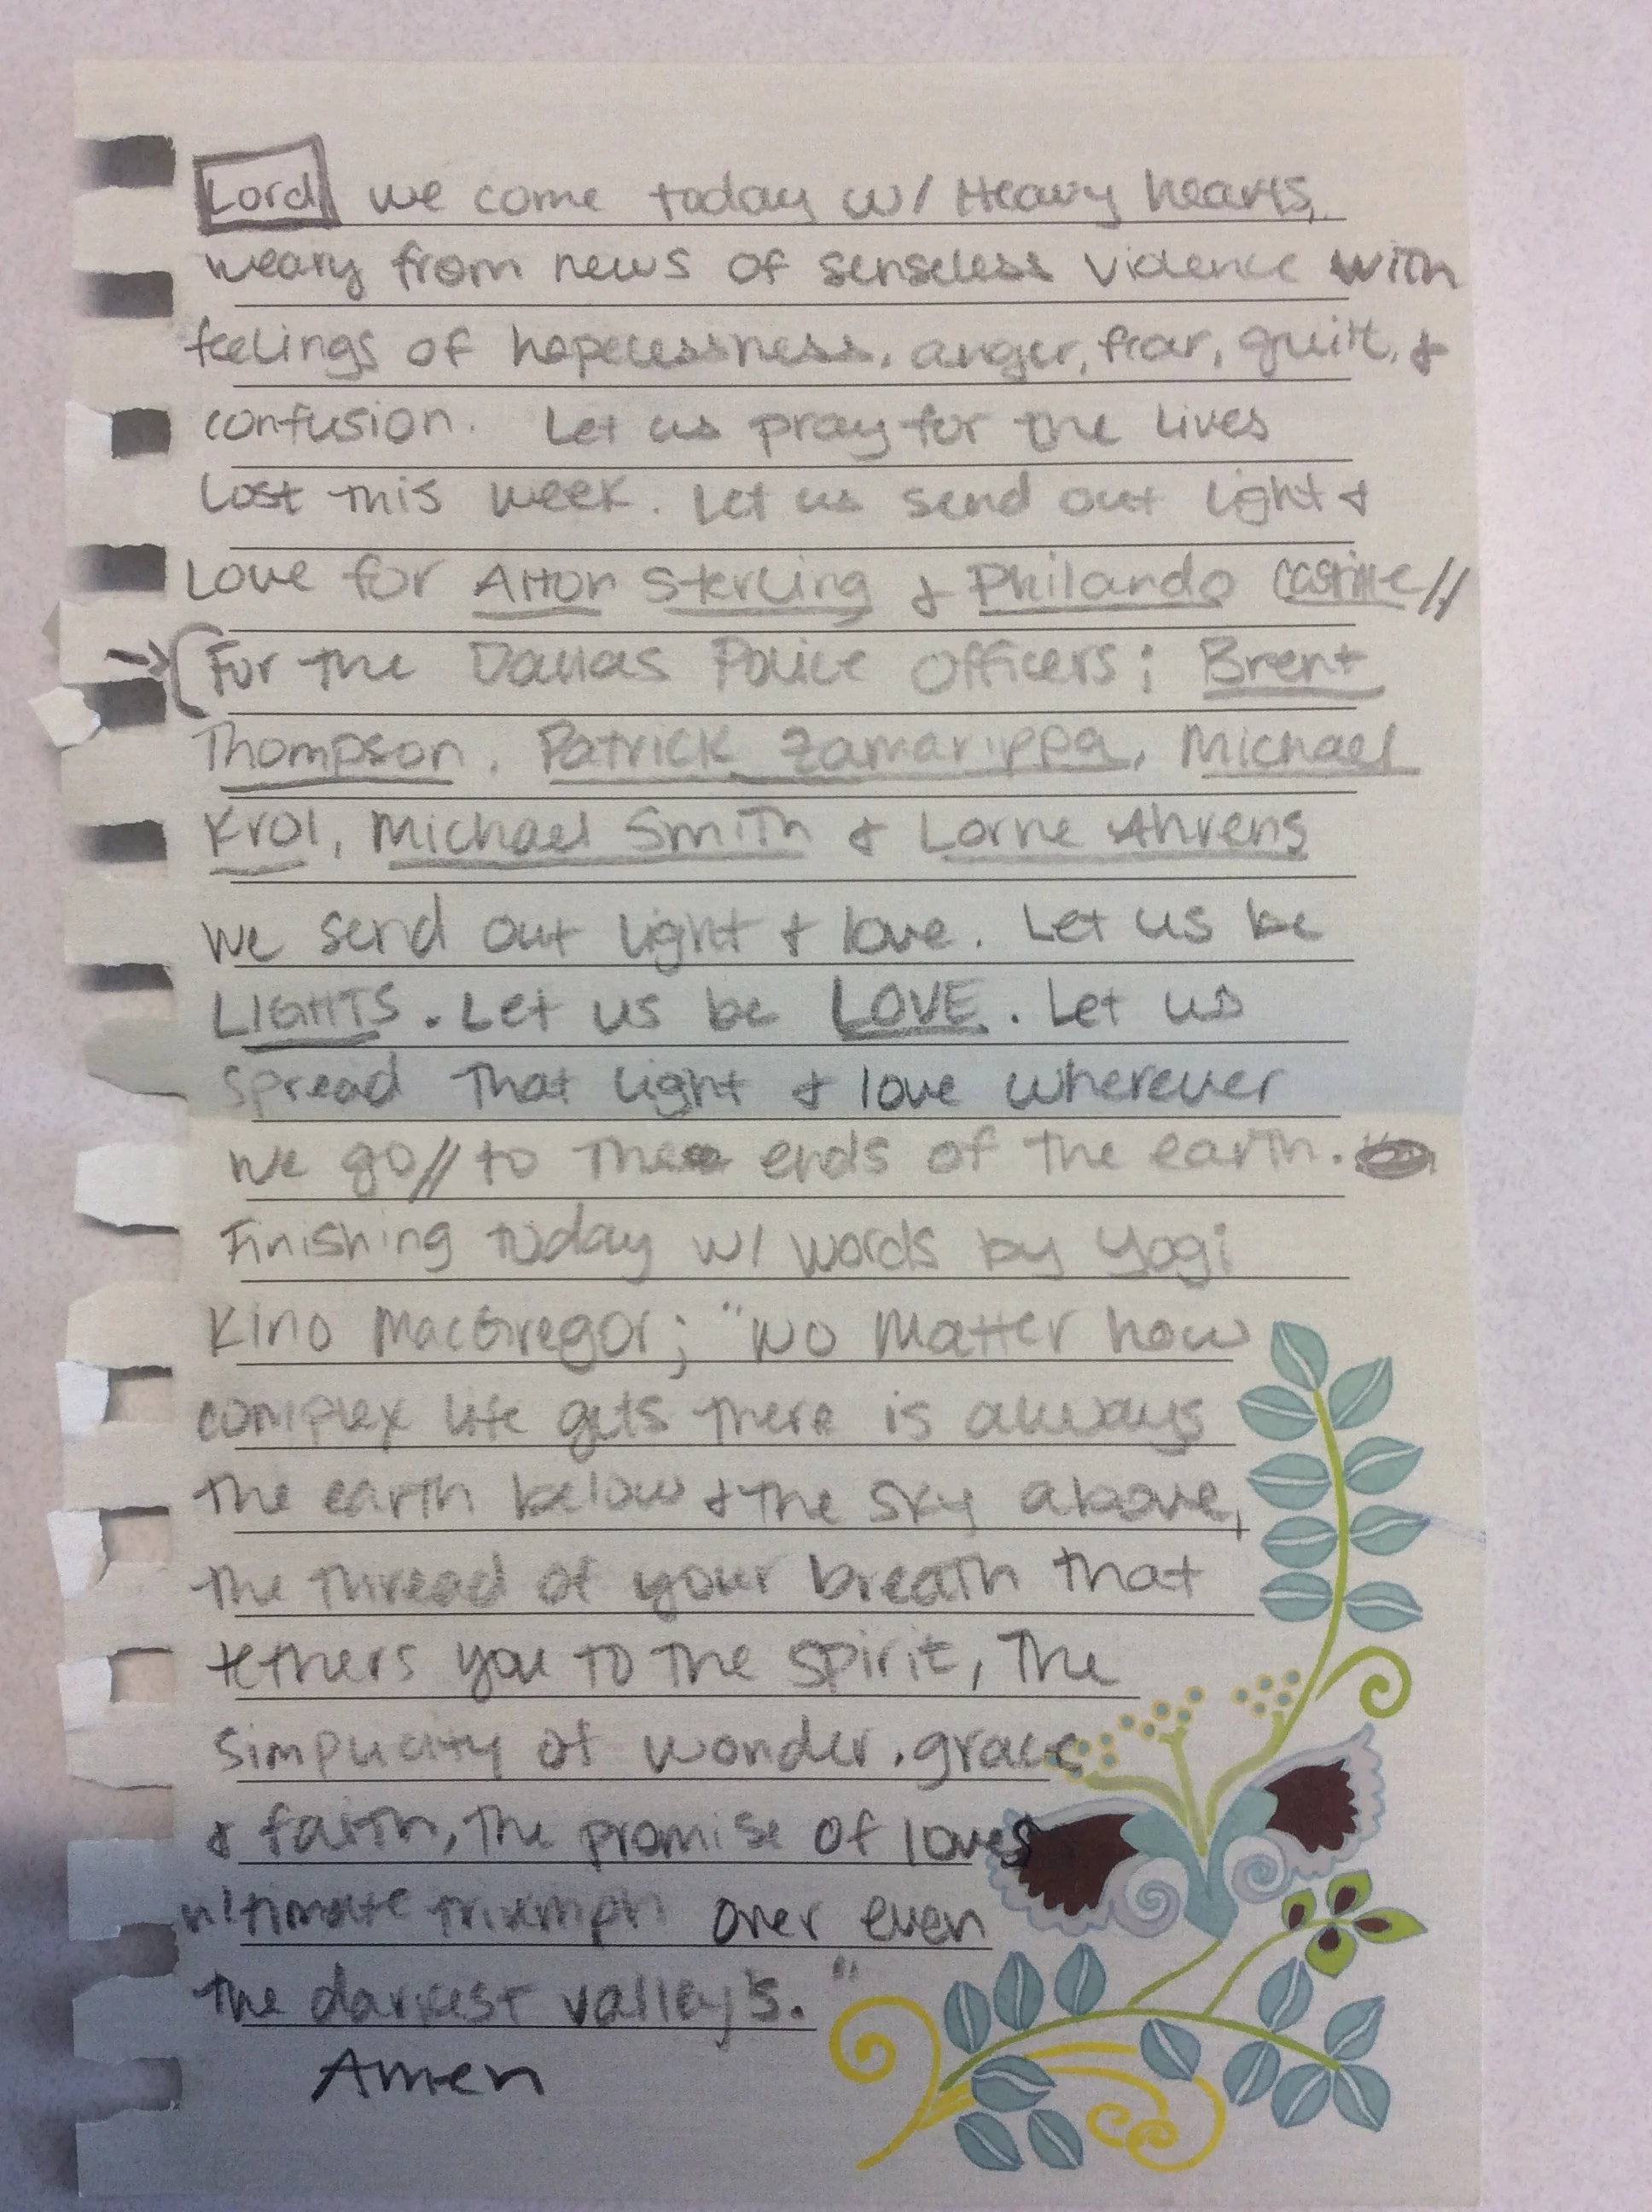 Lord we come today w/ Heavy hearts,
weary from news of senseless violence with
feelings of hopelessness, anger, fear, guilt, &
confusion. Let us pray for the lives
lost this week. Let us send out light &
Love for Alton Sterling & Philando Castille//
→ (For the Dallas Police Officers; Brent
Thompson, Patrick Zamarippa, Michael
Krol, Michael Smith & Lorne Ahrens
We send out light & love. Let us be
LIGHTS. Let us be LOVE. Let us
spread that light & love wherever
we go// to the ends of the earth.
Finishing today w/ words by Yogi
Kino MacGregor; "No Matter how
complex life gets there is always
the earth below & the sky above,
the thread of your breath that
tethers you to the spirit, the
simplicity of wonder, grace
& faith, the promise of loves
ultimate triumph over even
the darkest valley's."
Amen